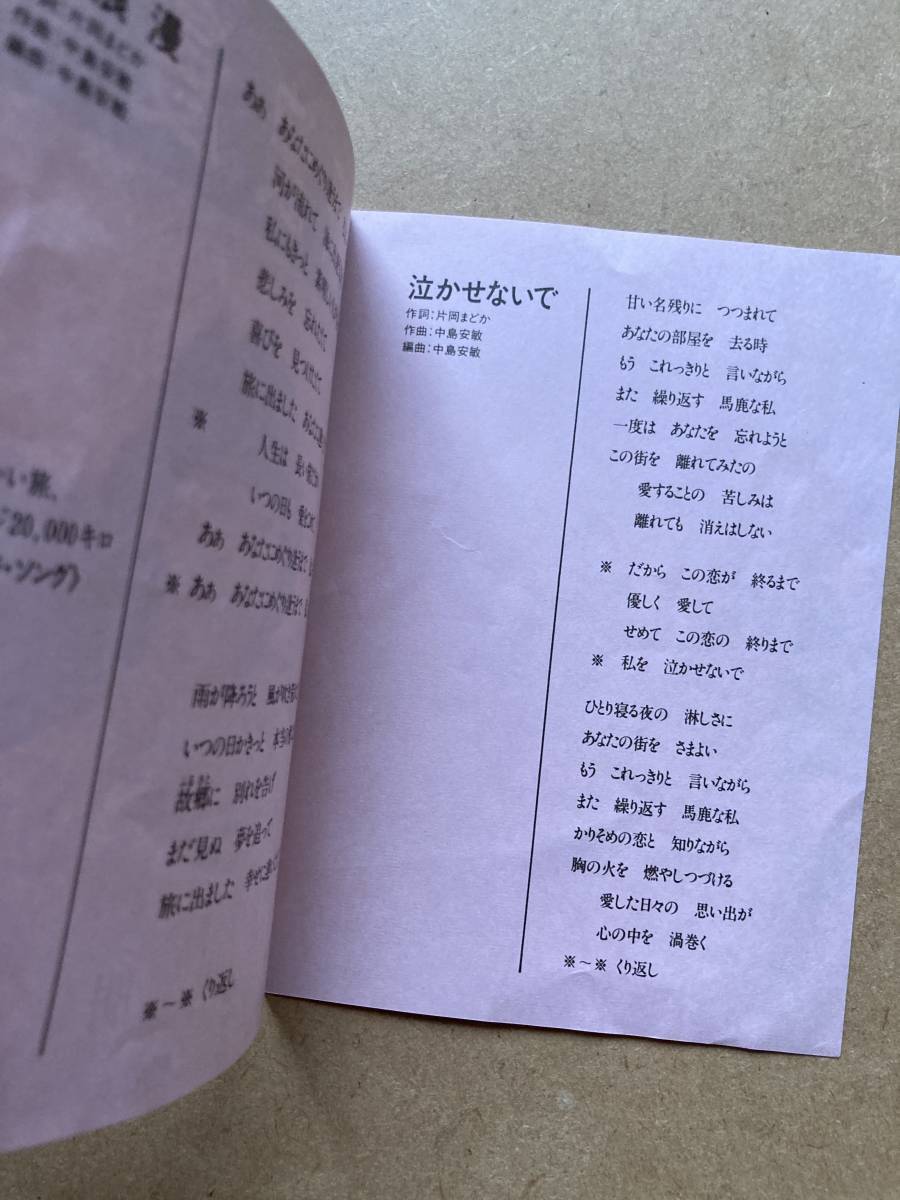 漫
片岡まどか
作曲：中島安敏
編曲：中島安敏
い旅、
20,000キロ
ソング）
ああ　あなたにめぐり逢えて
何かが
私にもきっと
悲しみを　忘れたくて
喜びを　見つけたくて
旅に出ました　あなた
※
人生は　長い
いつの日も　愛
ああ　あなたにめぐり逢えて
※　ああ　あなたにめぐり逢えて
雨が降ろうと　風が吹
いつの日かきっと　本当
故郷に　別れを告げ
まだ見ぬ　夢を追って
旅に出ました　幸せに
※～※　くり返し
泣かせないで
作詞：片岡まどか
作曲：中島安敏
編曲：中島安敏
甘い名残りに　つつまれて
あなたの部屋を　去る時
もう　これっきりと　言いながら
また　繰り返す　馬鹿な私
一度は　あなたを　忘れようと
この街を　離れてみたの
愛することの　苦しみは
離れても　消えはしない
※　だから　この恋が　終るまで
優しく　愛して
せめて　この恋の　終りまで
※　私を　泣かせないで
ひとり寝る夜の　淋しさに
あなたの街を　さまよい
もう　これっきりと　言いながら
また　繰り返す　馬鹿な私
かりそめの恋と　知りながら
胸の火を　燃やしつづける
愛した日々の　思い出が
心の中を　渦巻く
※～※　くり返し